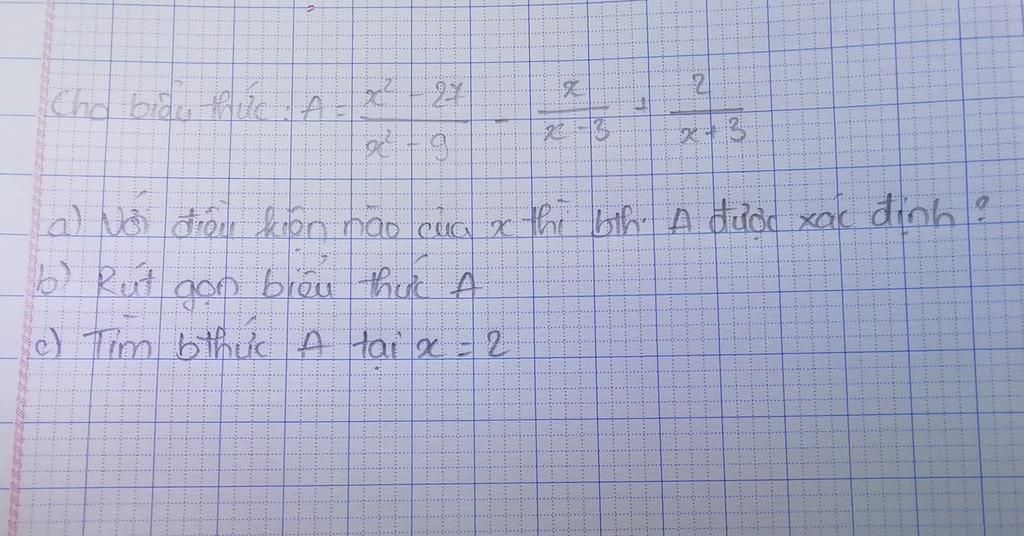 Cho biểu thức: A = \frac{x² - 27}{x² - 9} - \frac{x}{x - 3} + \frac{2}{x + 3}
a) Với điều kiện nào của x thì bth A được xác định?
b) Rút gọn biểu thức A
c) Tìm bthức A tại x = 2